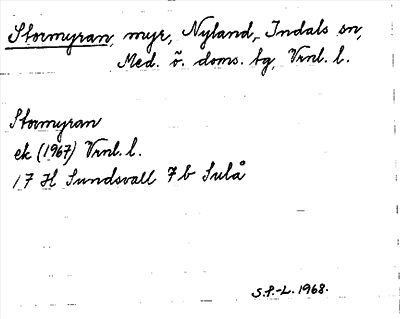 Stormyran, myr, Nyland, Indals sn,
Med. ö. doms. tg, Vrnl. l.
Stormyran
ek (1967) Vrnl. l.
17 H Sundsvall 7 b Sulå
S.P.-L. 1968.